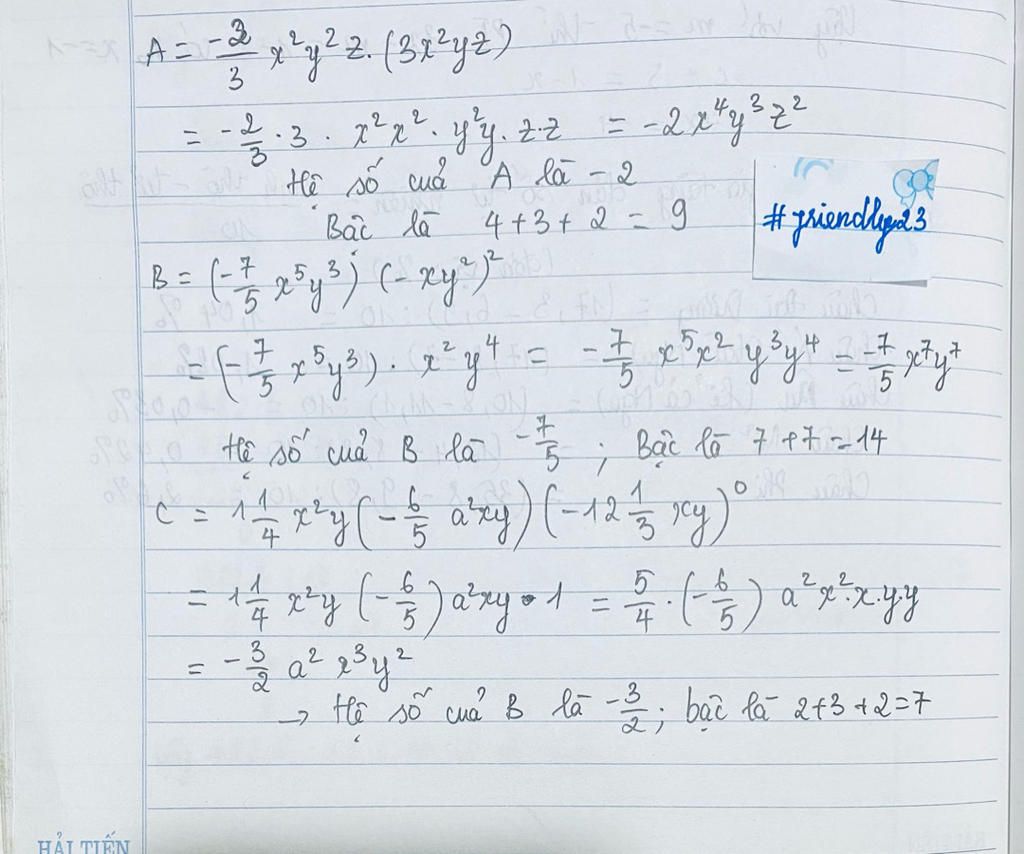 A = -2/3 x²y²z. (3x²yz)
= -2/3 · 3 · x²x² · y²y · z·z = -2x⁴y³z²
Hệ số cuả A là -2
Bậc là 4+3+2 = 9
#friendly23
B = (-7/5 x⁵y³) (-xy²)²
= (-7/5 x⁵y³) · x²y⁴ = -7/5 x⁵x² y³y⁴ = -7/5 x⁷y⁷
Hệ số cuả B là -7/5 ; Bậc là 7+7=14
C = 1 1/4 x²y (-6/5 a²xy) (-12 1/3 xy)⁰
= 1 1/4 x²y (-6/5) a²xy · 1 = 5/4 · (-6/5) a²x²·x·y·y
= -3/2 a² x³y²
→ Hệ số cuả B là -3/2 ; bậc là 2+3+2=7
HẢI TIẾN